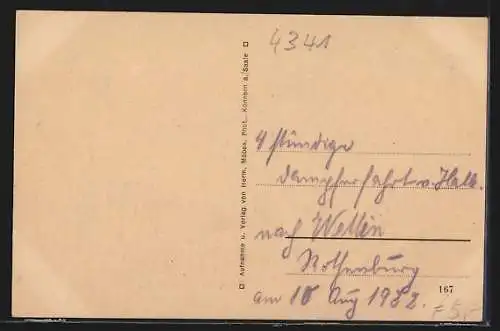 4341
Aufnahme u. Verlag von Herm. Möbes, Phot., Könnern a/Saale
4 stündige
Dampferfahrt v. Halle
nach Wettin
Rothenburg
am 10 Aug 1932.
167
5,-